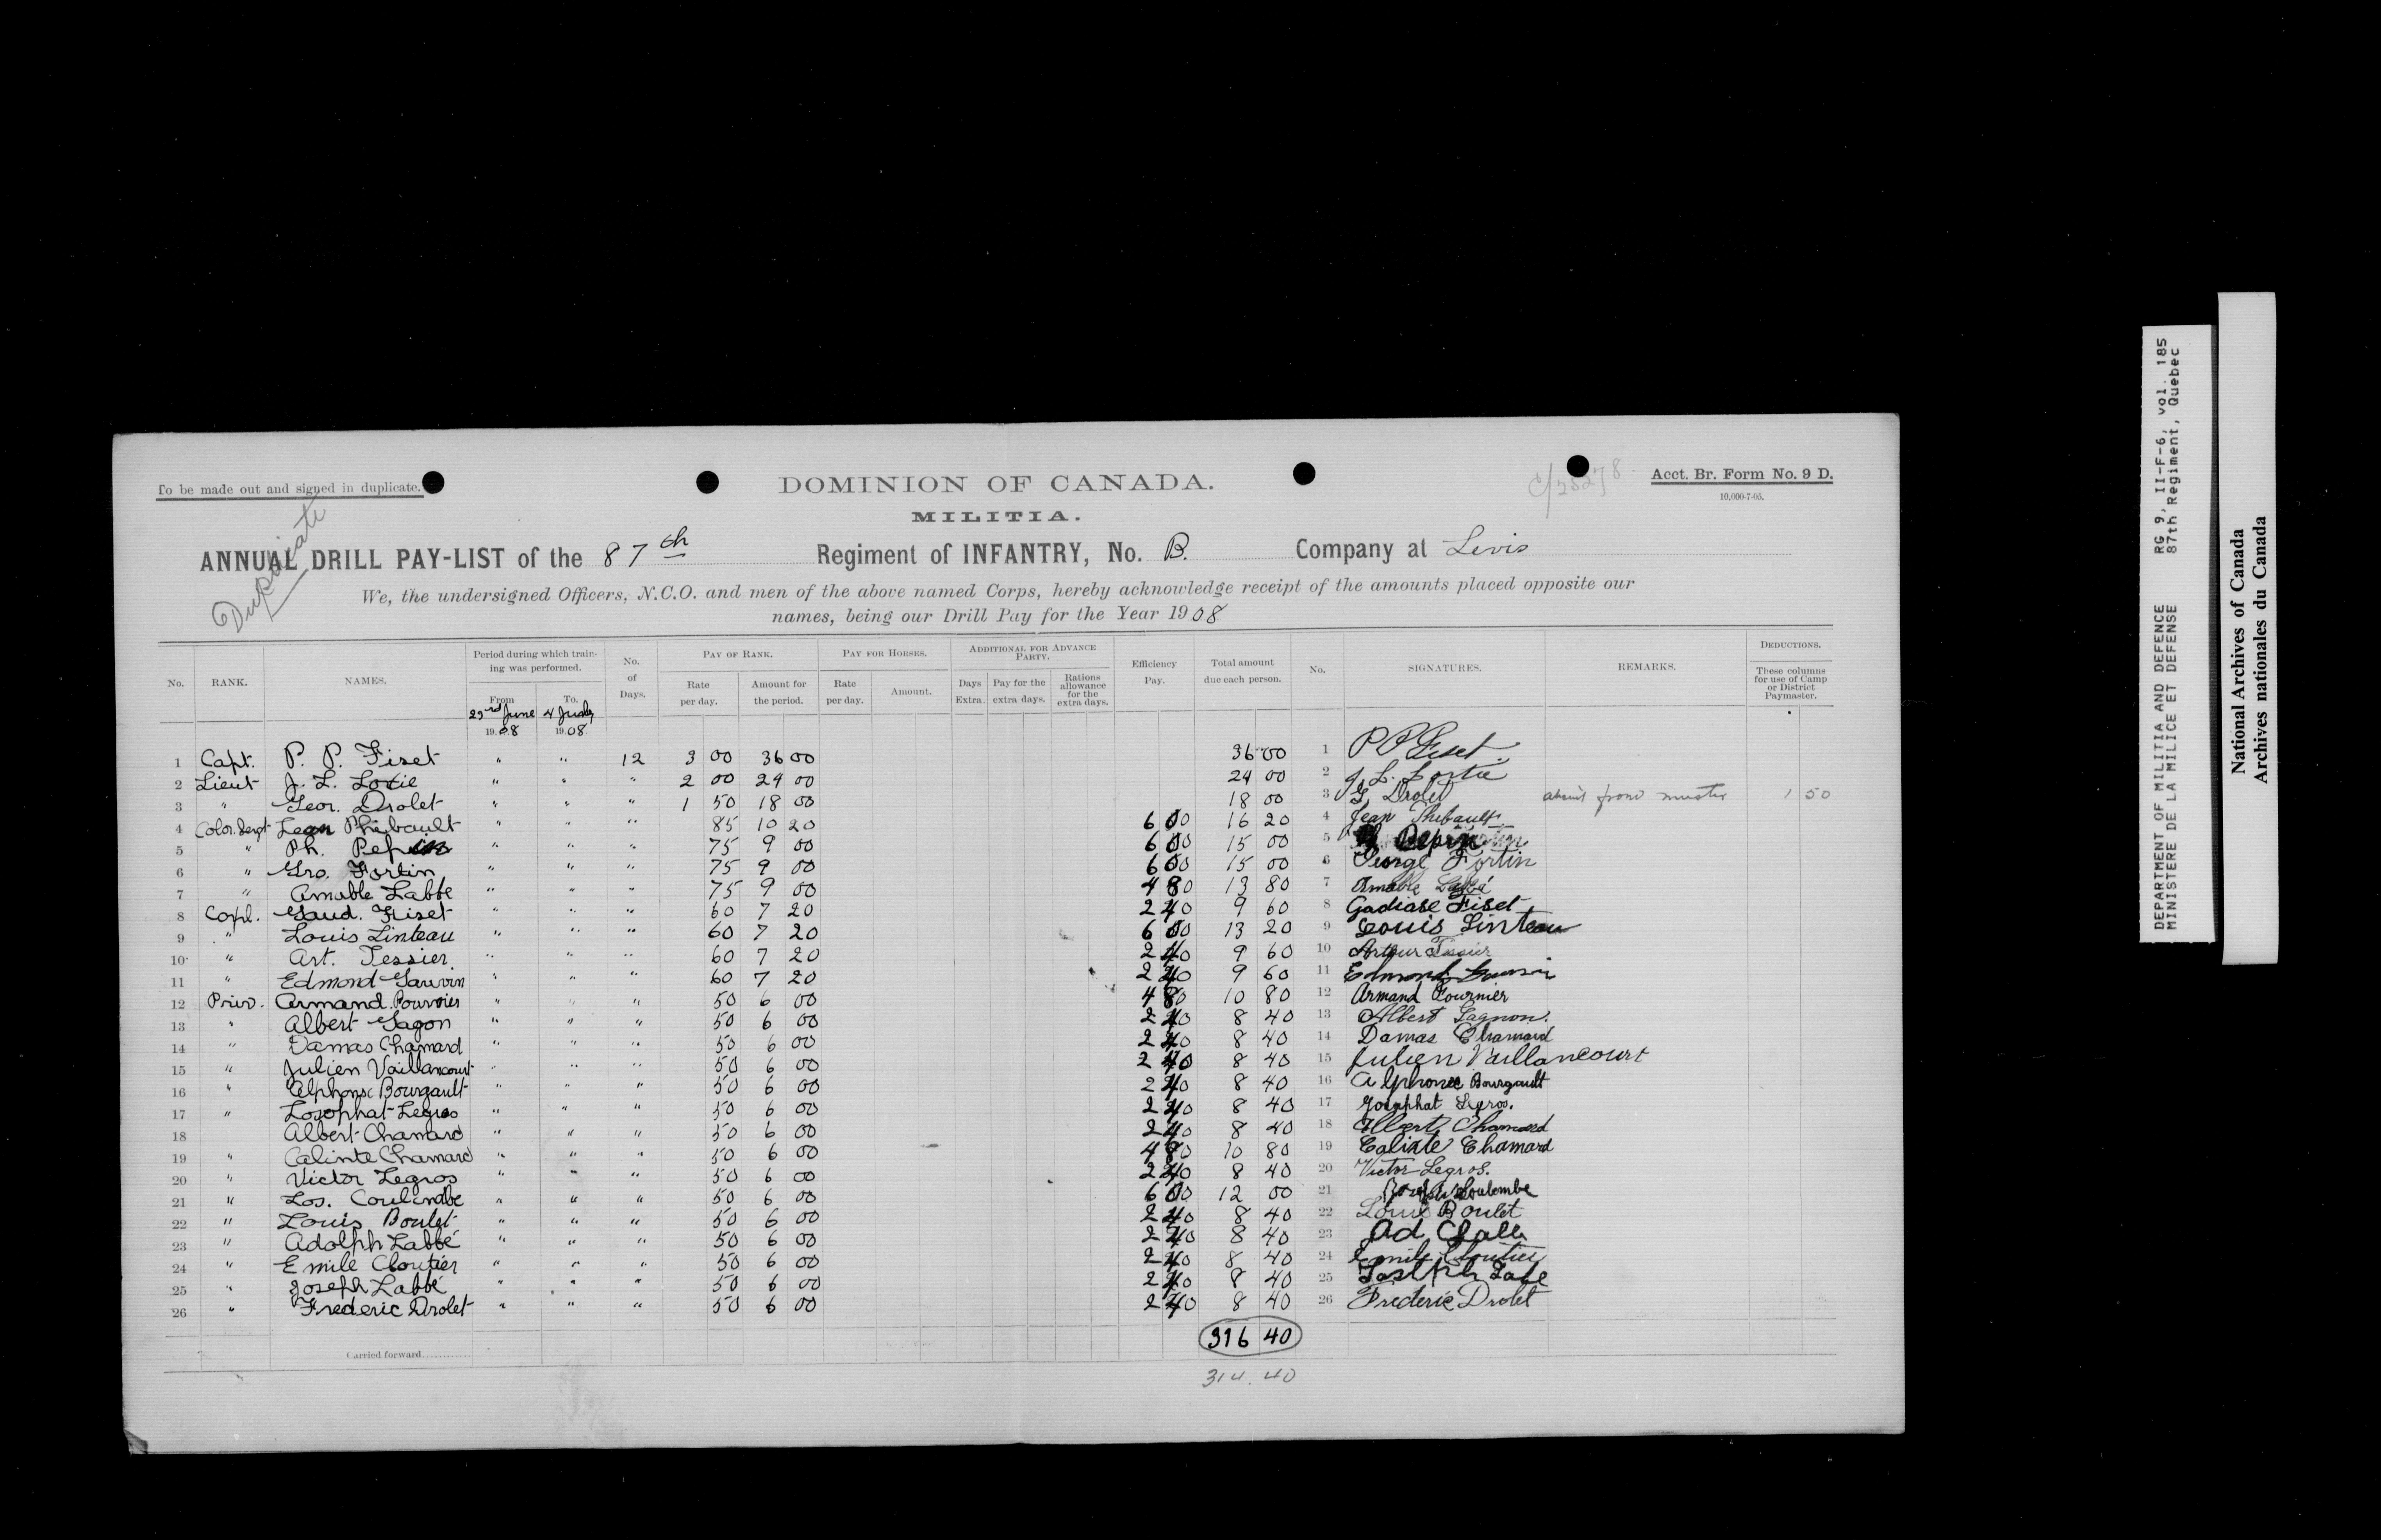 To be made out and signed in duplicate.
Duplicate
DOMINION OF CANADA.
MILITIA.
c/25278.
Acct. Br. Form No. 9 D.
10,000-7-05.
ANNUAL DRILL PAY-LIST of the 87th Regiment of INFANTRY, No. B. Company at Levis
We, the undersigned Officers, N.C.O. and men of the above named Corps, hereby acknowledge receipt of the amounts placed opposite our
names, being our Drill Pay for the Year 1908
No. RANK. NAMES. Period during which training was performed. From 23rd June 1908 To. 4 July 1908 No. of Days. PAY OF RANK. Rate per day. Amount for the period. PAY FOR HORSES. Rate per day. Amount. ADDITIONAL FOR ADVANCE PARTY. Days Extra. Pay for the extra days. Rations allowance for the extra days. Efficiency Pay. Total amount due each person. No. SIGNATURES. REMARKS. DEDUCTIONS. These columns for use of Camp or District Paymaster.
1 Capt. P. P. Fiset " " 12 3 00 36 00 36 00 1 P P Fiset
2 Lieut J. L. Lotie " " " 2 00 24 00 24 00 2 J. L. Lortie
3 " Geor. Drolet " " " 1 50 18 00 18 00 3 G. Drolet absent from muster 1 50
4 Color. Sergt Lean Phibault " " " 85 10 20 6 00 16 20 4 Jean Thibault
5 " Ph. Pepin " " " 75 9 00 6 00 15 00 5 Pepin
6 " Gro. Fortin " " " 75 9 00 6 00 15 00 6 George Fortin
7 " Amable Labbé " " " 75 9 00 4 80 13 80 7 Amable Labbé
8 Corpl. Gaud. Fiset " " " 60 7 20 2 40 9 60 8 Gadiase Fiset
9 " Louis Linteau " " " 60 7 20 6 00 13 20 9 Louis Linteau
10 " Art. Tessier " " " 60 7 20 2 40 9 60 10 Arthur Tissier
11 " Edmond Gauvin " " " 60 7 20 2 40 9 60 11 Edmond Gauvin
12 Priv. Armand Pournier " " " 50 6 00 4 80 10 80 12 Armand Fournier
13 " Albert Gagon " " " 50 6 00 2 40 8 40 13 Albert Gagnon.
14 " Damas Chamard " " " 50 6 00 2 40 8 40 14 Damas Chamard
15 " Julien Vaillancourt " " " 50 6 00 2 40 8 40 15 Julien Vaillancourt
16 " Alphonse Bourgault " " " 50 6 00 2 40 8 40 16 Alphonse Bourgault
17 " Losophat Legros " " " 50 6 00 2 40 8 40 17 Josaphat Legros.
18 Albert Chamard " " " 50 6 00 2 40 8 40 18 Albert Chamard
19 " Calinte Chamard " " " 50 6 00 4 80 10 80 19 Calixte Chamard
20 " Victor Legros " " " 50 6 00 2 40 8 40 20 Victor Legros.
21 " Los. Coulombe " " " 50 6 00 6 00 12 00 21 Joseph Coulombe
22 " Louis Boulet " " " 50 6 00 2 40 8 40 22 Louis Boulet
23 " Adolph Labbé " " " 50 6 00 2 40 8 40 23 Ad
24 " Emile Cloutier " " " 50 6 00 2 40 8 40 24 Emile Cloutier
25 " Joseph Labbé " " " 50 6 00 2 40 8 40 25 Joseph Labe
26 " Frederic Drolet " " " 50 6 00 2 40 8 40 26 Frederic Drolet
316 40
Carried forward
314.40
DEPARTMENT OF MILITIA AND DEFENCE RG 9, II-F-6, vol. 185
MINISTERE DE LA MILICE ET DEFENSE 87th Regiment, Quebec
National Archives of Canada
Archives nationales du Canada